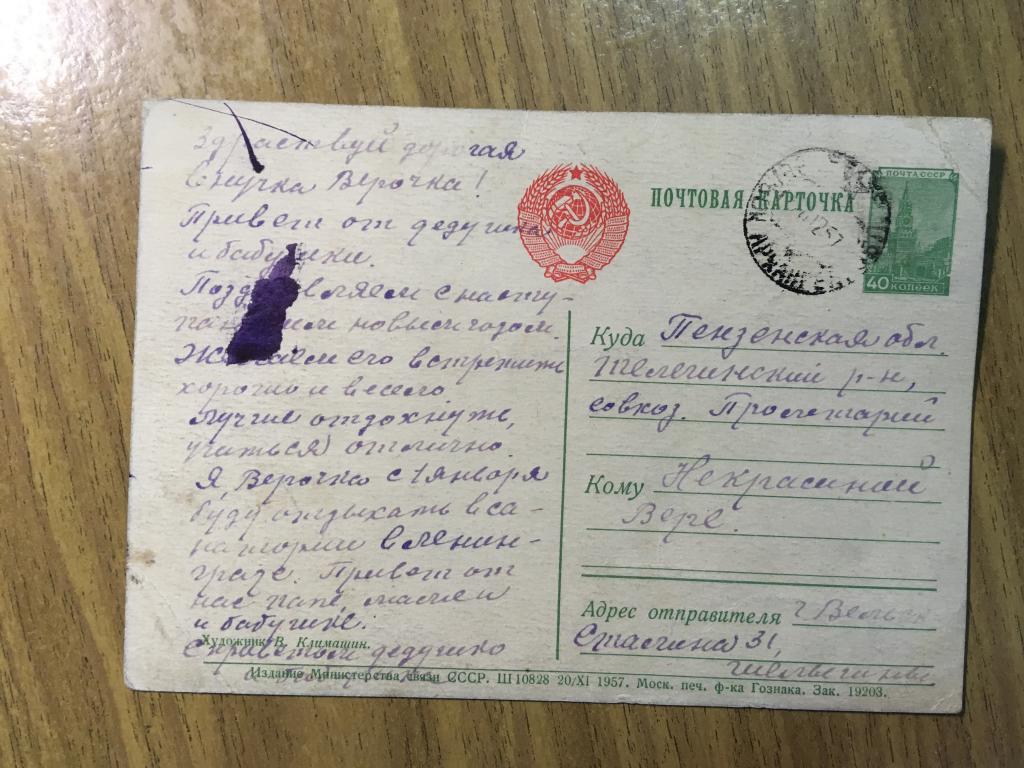 Здраствуй дорогая
внучка Верочка!
Привет от дедушки
и бабушки.
Поздравляем с насту-
пающим новым годом.
Желаем его встретить
хорошо и весело
лучше отдохнуть,
учиться отлично.
Я, Верочка с 1 января
буду отдыхать в са-
натории в Ленин-
граде. Привет от
нас папе, маме и
и бабушке.
Художник В. Климашин.
С приветом дедушко
ПОЧТОВАЯ КАРТОЧКА
ПОЧТА СССР
40 КОПЕЕК
Куда Пензенская обл.
Телегинский р-н,
совхоз. Пролетарий
Кому Некрасиной
Вере.
Адрес отправителя г Вельск
Сталина 31,
Издание Министерства связи СССР. Ш 10828 20/XI 1957. Моск. печ. ф-ка Гознака. Зак. 19203.